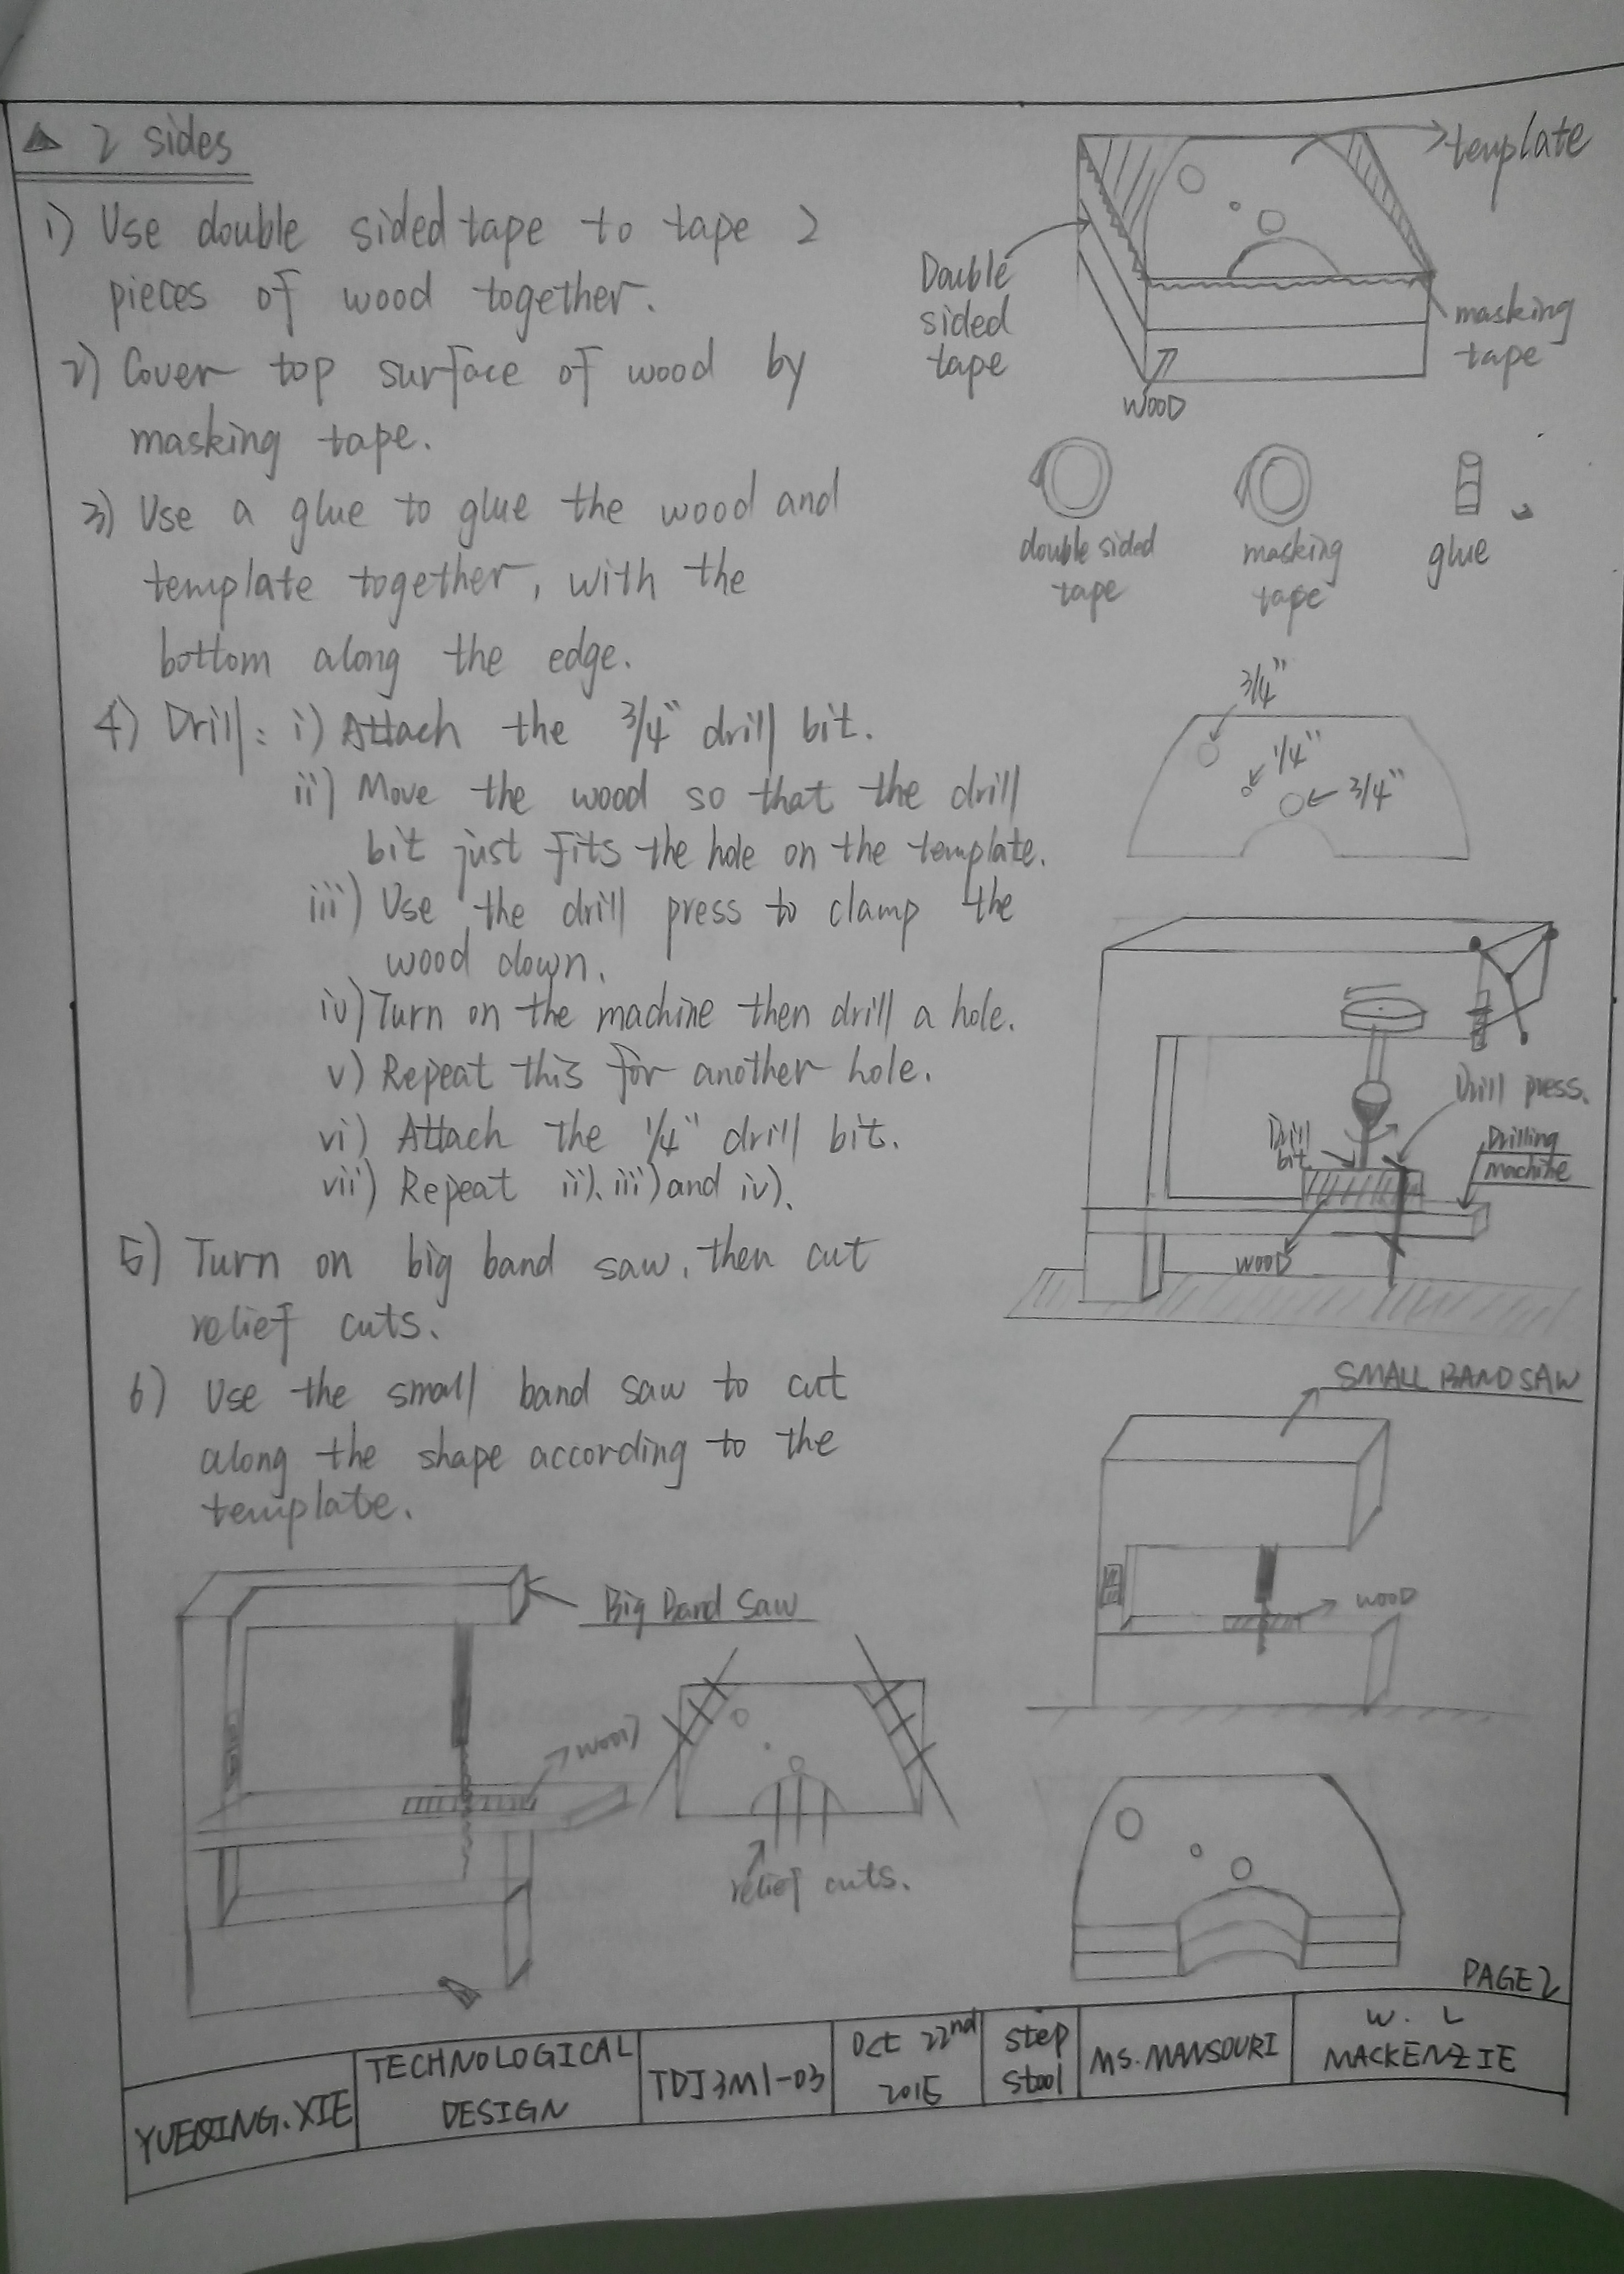 2 sides
1) Use double sided tape to tape 2
pieces of wood together.
2) Cover top surface of wood by
masking tape.
3) Use a glue to glue the wood and
template together, with the
bottom along the edge.
4) Drill: i) Attach the 3/4" drill bit.
ii) Move the wood so that the drill
bit just fits the hole on the template.
iii) Use the drill press to clamp the
wood down.
iv) Turn on the machine then drill a hole.
v) Repeat this for another hole.
vi) Attach the 1/4" drill bit.
vii) Repeat ii), iii) and iv).
5) Turn on big band saw, then cut
relief cuts.
6) Use the small band saw to cut
along the shape according to the
template.
template
Double
sided
tape
masking
tape
WOOD
double sided
tape
masking
tape
glue
3/4"
1/4"
3/4"
Drill press.
Drill
bit
Drilling
machine
WOOD
SMALL BAND SAW
WOOD
Big Band Saw
WOOD
relief cuts.
PAGE 2
YUEQING.XIE
TECHNOLOGICAL
DESIGN
TDJ3M1-03
Oct 22nd
2015
step
stool
MS. MANSOURI
W. L
MACKENZIE